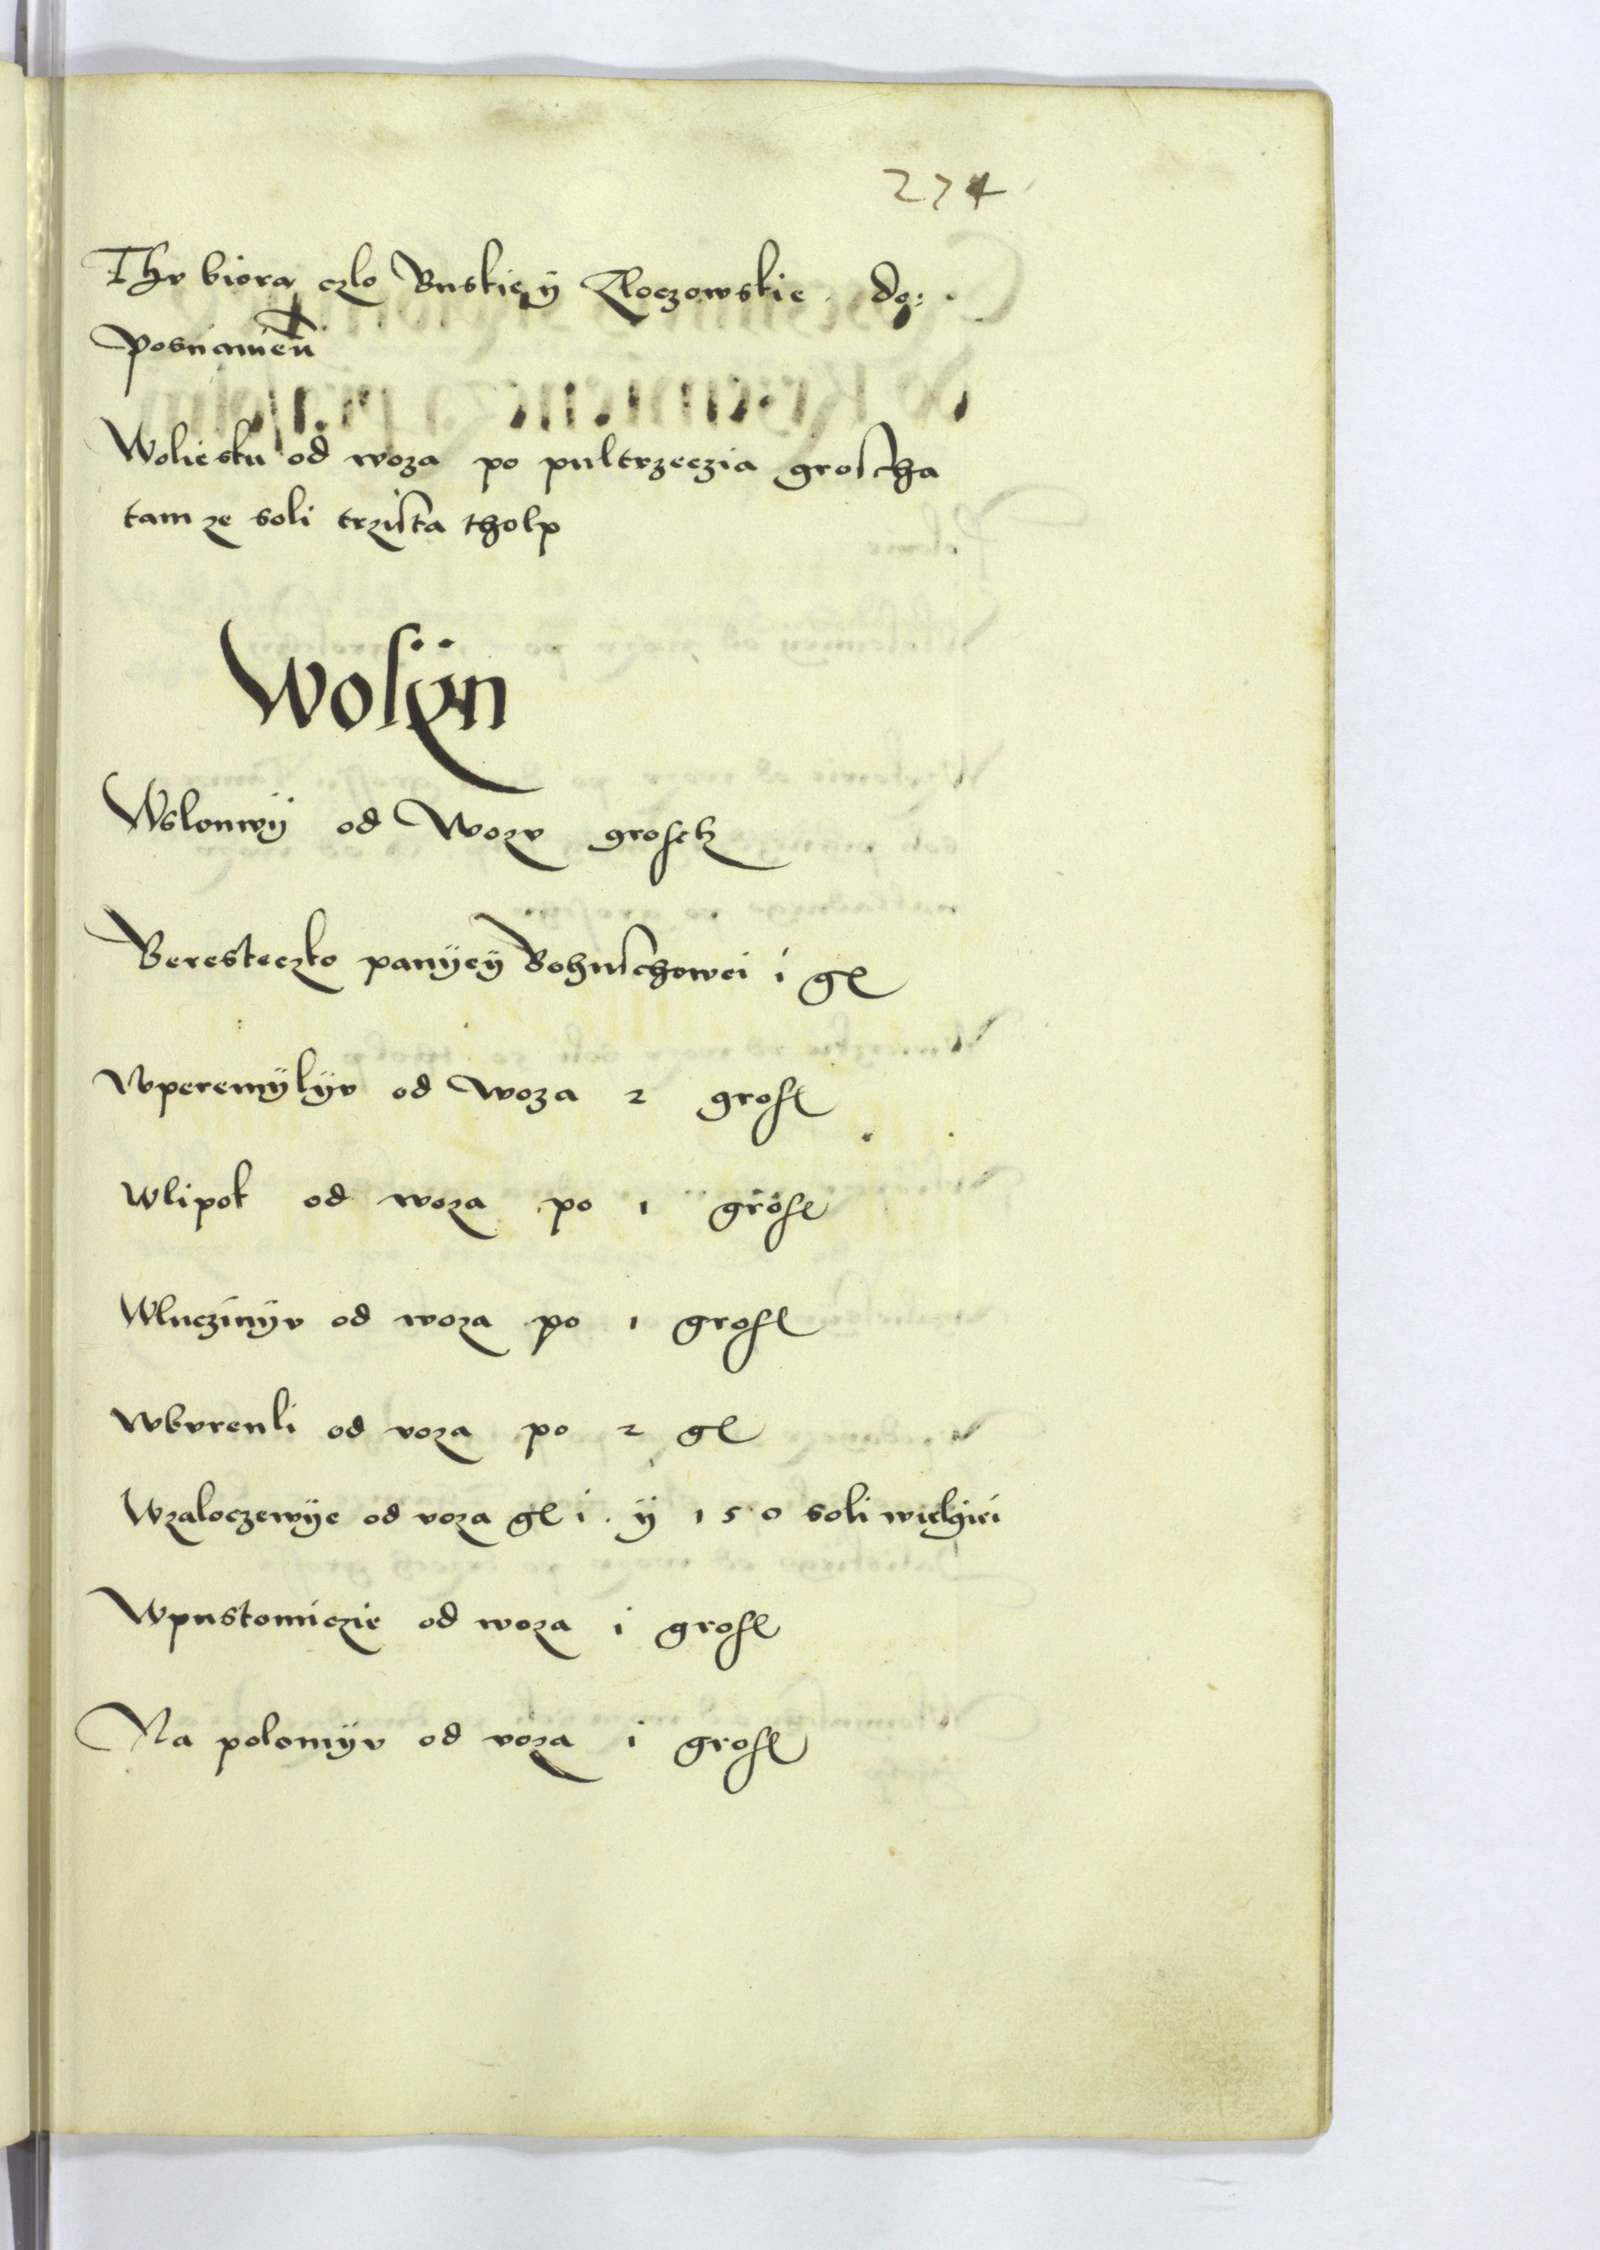 274
Thv biora czlo Buskie ÿ Zloczowskie . do:
Posnanien
Woliesku od woza po pultrzeczia groscha
tam ze soli trzista tholp
Wolÿn
Wslonwÿ od Wozv grosch
Beresteczko panÿeÿ Bohuschowei i gl
Wperemÿlÿv od woza 2 grosl
Wlipok od woza po 1 grosl
Wluczinÿv od woza po 1 grosl
Wbvrenli od voza po 2 gl
Wzaloczewÿe od voza gl i . ÿ 150 soli wielgiei
Wpustomiczie od woza i grosl
Na polomÿv od voza i grosl